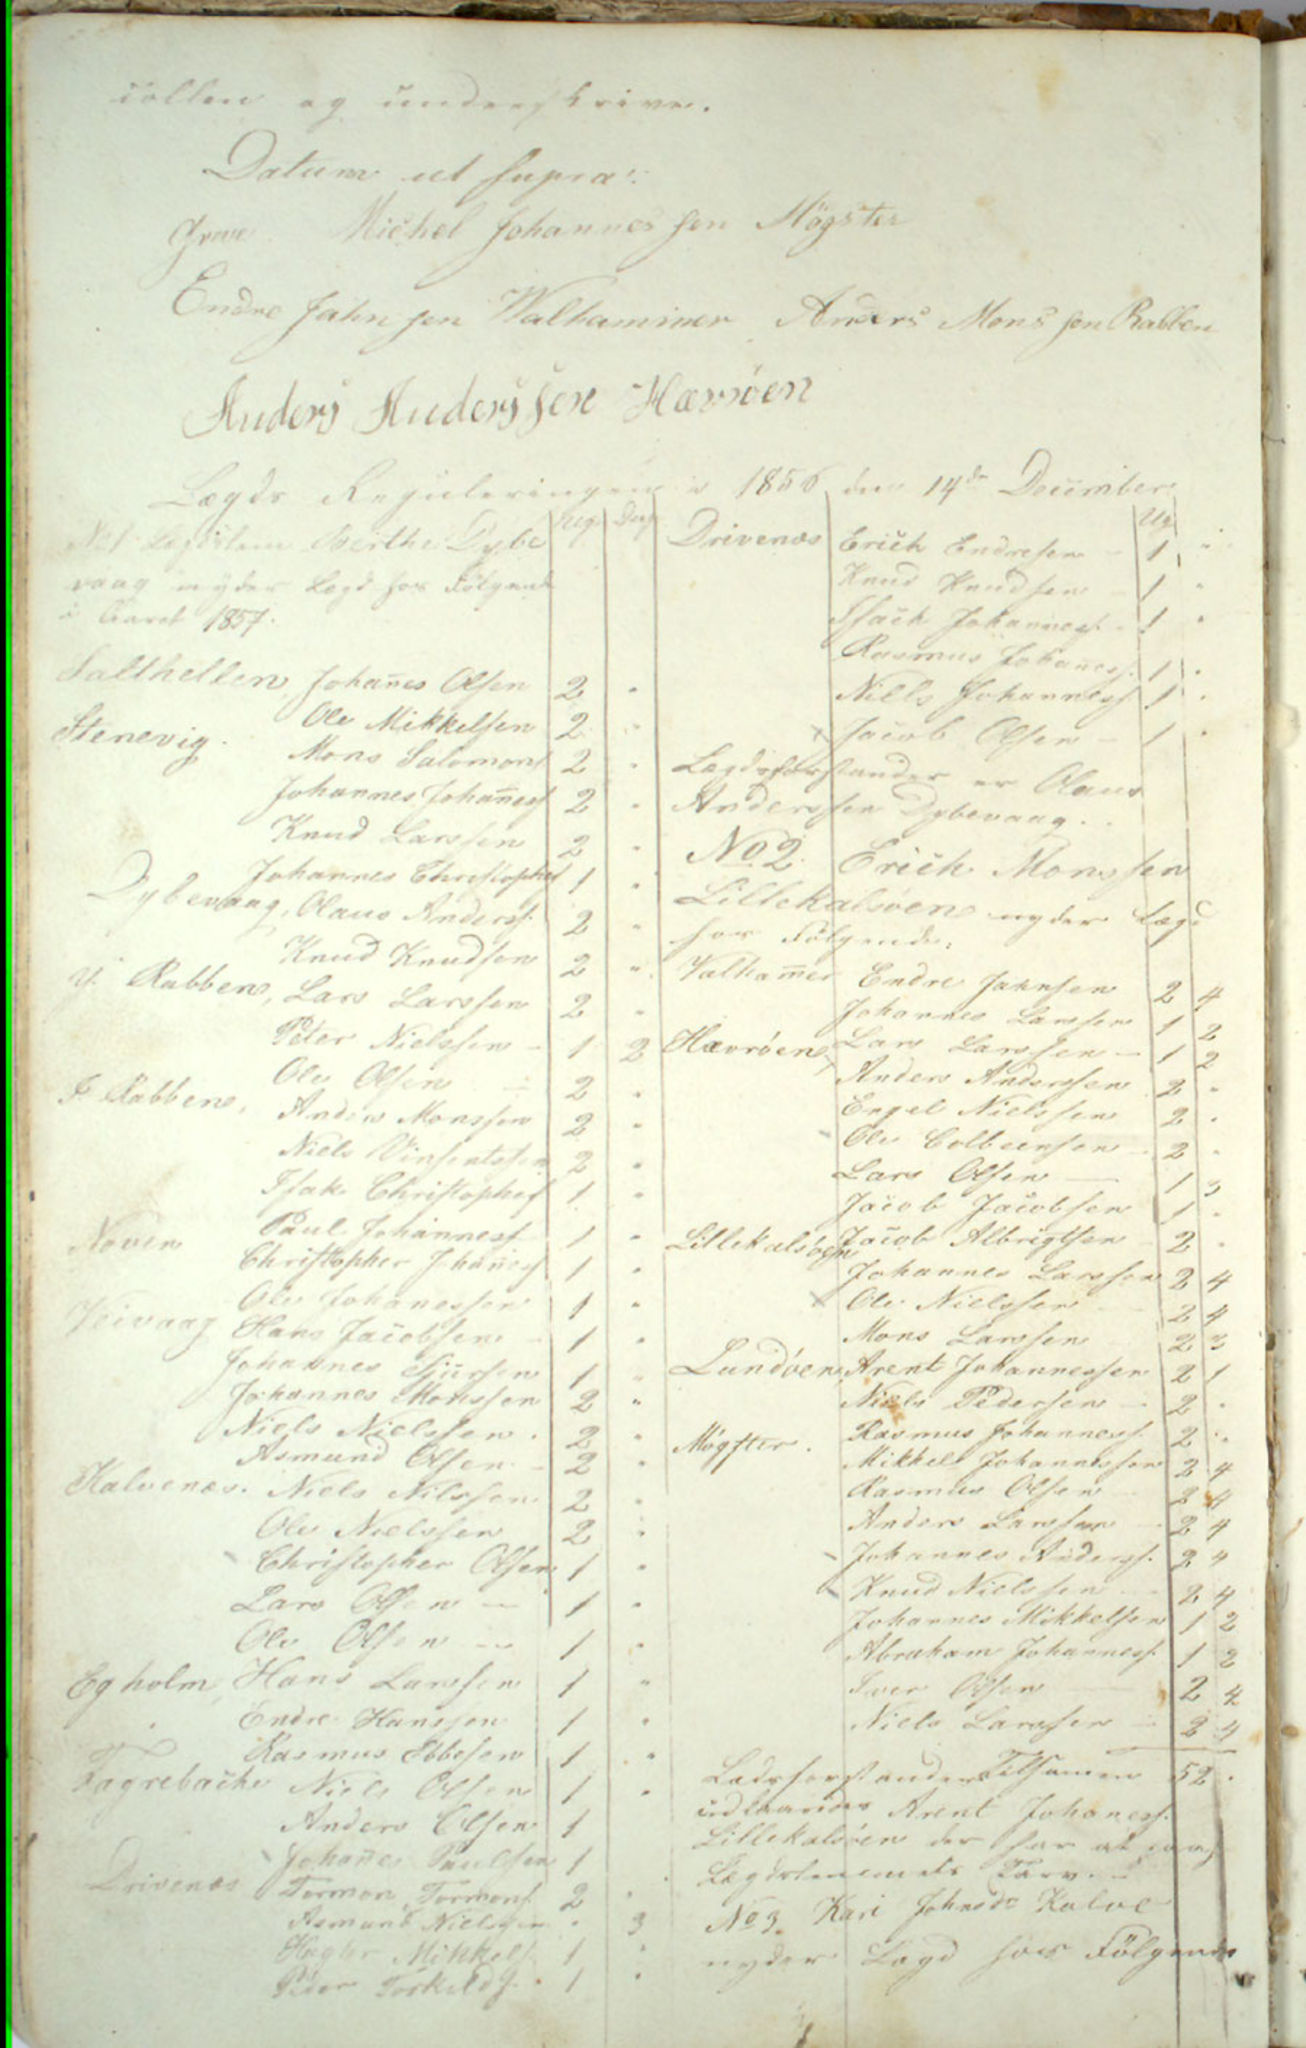 collen og underskriver.
Datum ut supra:
Greve. Michel Johannes sen Mögster
Endre Jahn sen Walhammer Anders Mons sen Rabben
Anders Anders sen Hævröen
Lægds Reguleringen i 1856 den 14de December
No 1 Lægdslem Berthe Dybe
vaag nyder Lægd hos Følgende
i Aaret 1857.
Ug. Dag
Salthellen Johanes Olsen 2 "
Ole Mikkelsen 2 "
Stenevig. Mons Salomons 2 "
Johannes Johaness 2 "
Knud Larssen 2 "
Johannes Christophes 1 "
Dybevaag, Olaus Anders. 2 "
Knud Knudsen 2 "
Y. Rabben, Lars Larssen 2 "
Peter Nielssen - 1 2
Ole Olsen - 2 "
I. Rabben, Anders Monssen 2 "
Niels Vinsentssen 2 "
Isak Christophes 1 "
Noven Paul Johanness 1 "
Christopher Johaness 1 "
Ole Johanessen 1 "
Veivaag Hans Jacobsen - 1 "
Johannes Sjursen 1 "
Johannes Monssen 2 "
Niels Nielssen . 2 "
Asmund Olsen - 2 "
Kalvenæs. Niels Nilssen 2 "
Ole Nielssen 2 "
Christopher Olsen 1 "
Lars Olsen - 1 "
Ole Olsen - 1 "
Egholm Hans Larssen 1 "
Endre Hanssen 1 "
Rasmus Ebbesen 1 "
Fagrebacke Niels Olsen 1 "
Anders Olsen 1
Johanes Paulsen 1 .
Drivenæs Tormon Tormons. 2 .
Asmund Nielssen . 3
Mikkels. 1 "
Peder Torkilds. . 1 .
Ug
Drivenæs Erich Endresen - 1 "
Knud Knudsen 1 "
Isach Johanness. - 1 "
Rasmus Johaness. 1 .
Niells Johanness 1 .
Jacob Olsen - 1 .
Lægdsforstander er Olaus
Anderssen Dybevaag. .
No 2. Erich Monssen
Lillekalsøen nyder Lægd
hos Følgende.
Valhamer Endre Jahnsen 2 4
Johannes Larssen 1 2
Hævröen, Lars Larssen - 1 2
Anders Anderssen 2 .
Engel Nielssen 2 .
Ole Colbeensen - 2 .
Lars Olsen - 1 3
Jacob Jacobsen 1 .
Lillekalsøen Jacob Albrigtsen 2 .
Johannes Larssen 2 4
Ole Nielssen - 2 4
Mons Larssen 2 3
Lundøen, Arent Johannessen 2 1
Niels Pedersen - 2 .
Møgster. Rasmus Johanness. 2 .
Mikkel Johannessen 2 4
Rasmus Olsen - 2 4
Anders Larssen - 2 4
Johannes Anderss. 2 4
Knud Nielssen - 2 4
Johannes Mikkelsen 1 2
Abraham Johanness. 1 2
Iver Olsen - 2 4
Niels Larssen - 2 4
Lædsforstander Tilsamen 52 .
Arent Johaness.
Lillekalsøen der har at
Lægdslemets Tarv. -
No 3. Kari Johnsdr Kalve
nyder Lægd hos Følgende